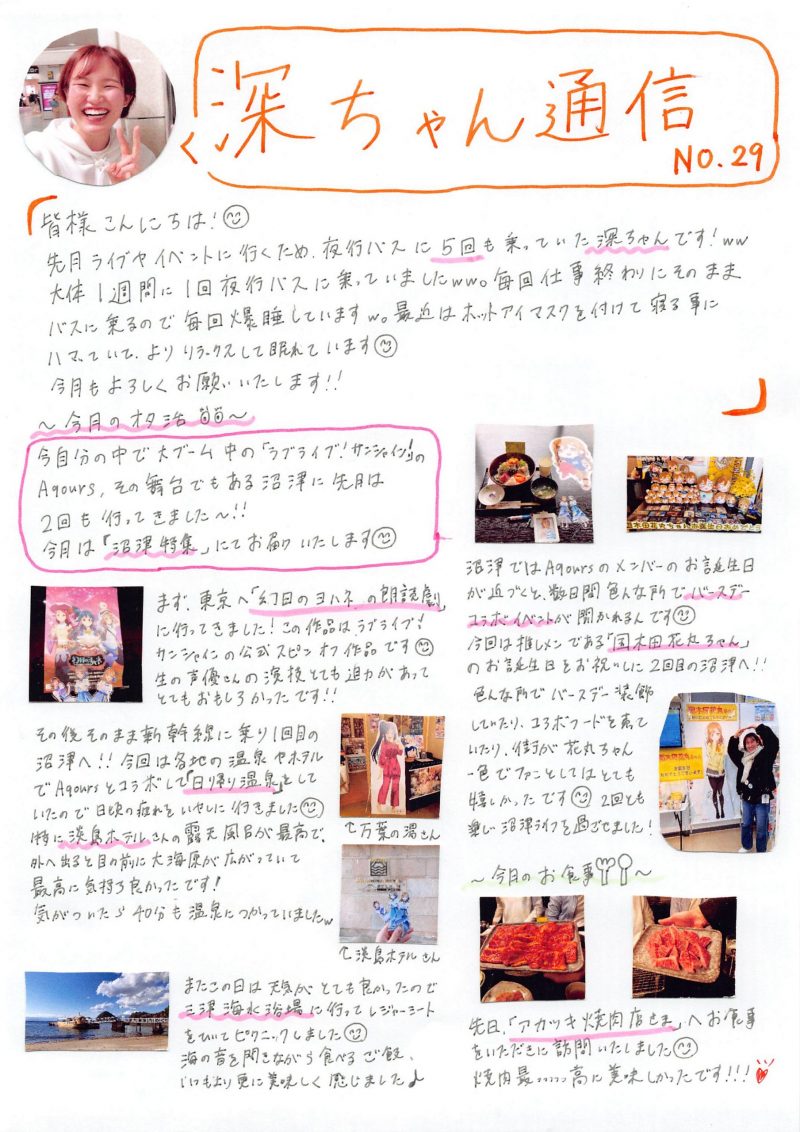 深ちゃん通信
NO.29
皆様こんにちは!
先月ライブやイベントに行くため、夜行バスに5回も乗っていた深ちゃんです!ww
大体1週間に1回夜行バスに乗っていましたww。毎回仕事終わりにそのまま
バスに乗るので毎回爆睡していますw。最近はホットアイマスクを付けて寝る事に
ハマっていて、よりリラックスして眠れています
今月もよろしくお願いいたします!!
～今月のオタ活～
今自分の中で大ブーム中の「ラブライブ!サンシャイン!!」の
Aqours,その舞台でもある沼津に先月は
2回も行ってきました～!!
今月は「沼津特集」にてお届けいたします
まず、東京へ「幻日のヨハネの朗読劇」
に行ってきました!この作品はラブライブ!
サンシャインの公式スピンオフ作品です
生の声優さんの演技とても迫力があって
とてもおもしろかったです!!
その後そのまま新幹線に乗り1回目の
沼津へ!!今回は各地の温泉やホテル
でAqoursとコラボして「日帰り温泉」をして
いたので日頃の疲れをいやしに行きました
特に淡島ホテルさんの露天風呂が最高で、
外へ出ると目の前に大海原が広がっていて
最高に気持ち良かったです!
気がついたら40分も温泉につかっていましたw
↑万葉の湯さん
↑淡島ホテルさん
またこの日は天気がとても良かったので
三津海水浴場に行ってレジャーシート
をひいてピクニックしました
海の音を聞きながら食べるご飯、
いつもより更に美味しく感じました♪
沼津ではAqoursのメンバーのお誕生日
が近づくと、数日間色んな所でバースデー
コラボイベントが開かれるんです
今回は推しメンである「国木田花丸ちゃん」
のお誕生日をお祝いしに2回目の沼津へ!!
色んな所でバースデー装飾
していたり、コラボフードを売って
いたり、街が花丸ちゃん
一色でファンとしてはとても
嬉しかったです 2回とも
楽しい沼津ライフを過ごせました!
～今日のお食事～
先日、「アカツキ焼肉店さま」へお食事
をいただきに訪問いたしました
焼肉最ッッッッッ高に美味しかったです!!!